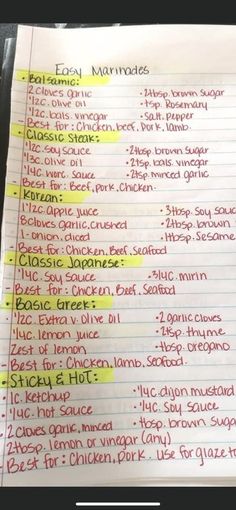 Easy Marinades
• Balsamic:
2 cloves garlic • 2tbsp. brown sugar
1/2c. olive oil • tsp. Rosemary
1/2c. bals. vinegar • salt. pepper
- Best for: Chicken, beef, pork, lamb.
• Classic Steak:
• 1/2c. soy sauce • 2tbsp. brown sugar
• 1/3c. olive oil • 2tsp. bals. vinegar
• 1/4c. worc. sauce • 2tsp. minced garlic
- Best for: Beef, pork, Chicken.
• Korean:
• 1/2c. apple juice • 3tbsp. soy sauc
8 cloves garlic, crushed • 2tbsp. brown
1 onion, diced • 1tbsp. Sesame
- Best for: Chicken, Beef, Seafood
• Classic Japanese:
• 1/4c. Soy sauce • 3/4c. mirin
- Best for: Chicken, Beef, Seafood
• Basic Greek:
• 1/2c. Extra v. olive oil • 2 garlic cloves
• 1/4c. lemon juice • 2tsp. thyme
Zest of lemon • tbsp. oregano
- Best for: Chicken, lamb, Seafood.
• Sticky & Hot:
• 1c. ketchup • 1/4c. dijon mustard
• 1/4c. hot sauce • 1/4c. Soy sauce
• 2 cloves garlic, minced • tbsp. brown suga
2tbsp. lemon or vinegar (any)
- Best for: Chicken, pork. use for glaze t